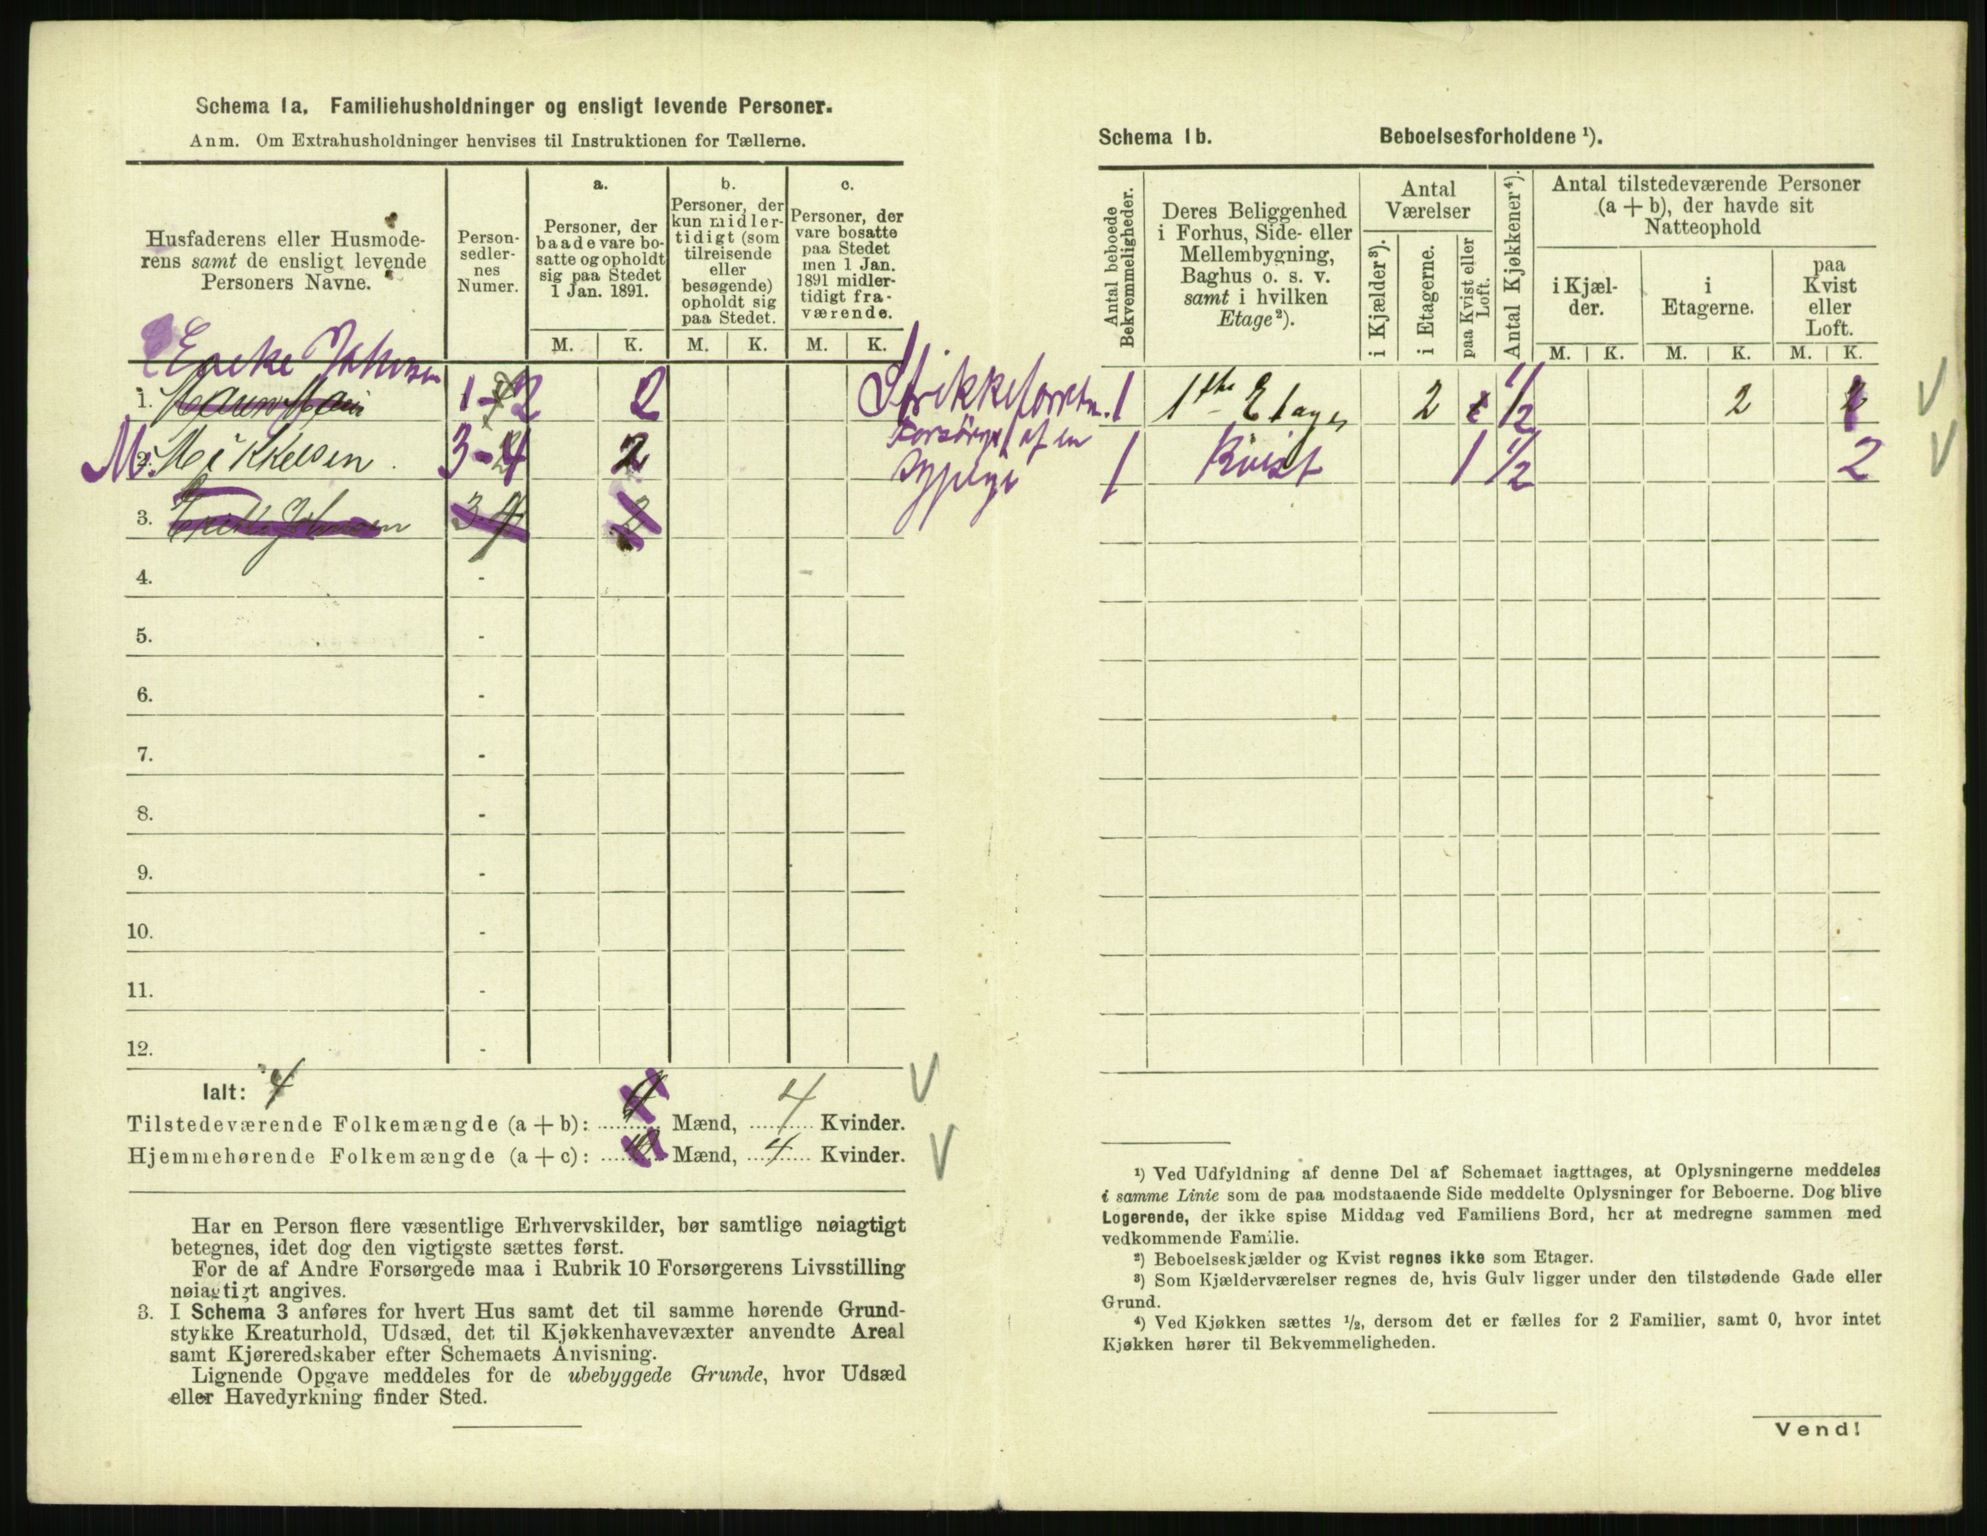 Schema 1a. Familiehusholdninger og ensligt levende Personer.
Anm. Om Extrahusholdninger henvises til Instruktionen for Tællerne.
Husfaderens eller Husmode-
rens samt de ensligt levende
Personers Navne.
Person-
sedler-
nes
Numer.
a.
Personer, der
baade vare bo-
satte og opholdt
sig paa Stedet
1 Jan. 1891.
b.
Personer, der
kun midler-
tidigt (som
tilreisende
eller
besøgende)
opholdt sig
paa Stedet.
c.
Personer, der
vare bosatte
paa Stedet
men 1 Jan.
1891 midler-
tidigt fra-
værende.
M. K. M. K. M. K.
Enke Johnsen
1. 1-2 2 Strikkeforretn.
2. M. Mikkelsen 3-4 2 Forsørges af en
Sypige
3. Johnsen 3-4
4. -
5. -
6. -
7. -
8. -
9. -
10. -
11. -
12. -
Ialt: 4
Tilstedeværende Folkemængde (a + b): Mænd, 4 Kvinder.
Hjemmehørende Folkemængde (a + c): Mænd, 4 Kvinder.
Har en Person flere væsentlige Erhvervskilder, bør samtlige nøiagtigt
betegnes, idet dog den vigtigste sættes først.
For de af Andre Forsørgede maa i Rubrik 10 Forsørgerens Livsstilling
nøiagtigt angives.
3. I Schema 3 anføres for hvert Hus samt det til samme hørende Grund-
stykke Kreaturhold, Udsæd, det til Kjøkkenhavevæxter anvendte Areal
samt Kjøreredskaber efter Schemaets Anvisning.
Lignende Opgave meddeles for de ubebyggede Grunde, hvor Udsæd
eller Havedyrkning finder Sted.
Schema 1b. Beboelsesforholdene ¹).
Antal beboede
Bekvemmeligheder.
Deres Beliggenhed
i Forhus, Side- eller
Mellembygning,
Baghus o. s. v.
samt i hvilken
Etage²).
Antal
Værelser
i Kjælder³).
i Etagerne.
paa Kvist eller
Loft.
Antal Kjøkkener⁴).
Antal tilstedeværende Personer
(a + b), der havde sit
Natteophold
i Kjæl-
der.
i
Etagerne.
paa
Kvist
eller
Loft.
M. K. M. K. M. K.
1 1ste Etage 2 1/2 2
1 Kvist 1 1/2 2
¹) Ved Udfyldning af denne Del af Schemaet iagttages, at Oplysningerne meddeles
i samme Linie som de paa modstaaende Side meddelte Oplysninger for Beboerne. Dog blive
Logerende, der ikke spise Middag ved Familiens Bord, her at medregne sammen med
vedkommende Familie.
²) Beboelseskjælder og Kvist regnes ikke som Etager.
³) Som Kjælderværelser regnes de, hvis Gulv ligger under den tilstødende Gade eller
Grund.
⁴) Ved Kjøkken sættes ¹/₂, dersom det er fælles for 2 Familier, samt 0, hvor intet
Kjøkken hører til Bekvemmeligheden.
Vend!